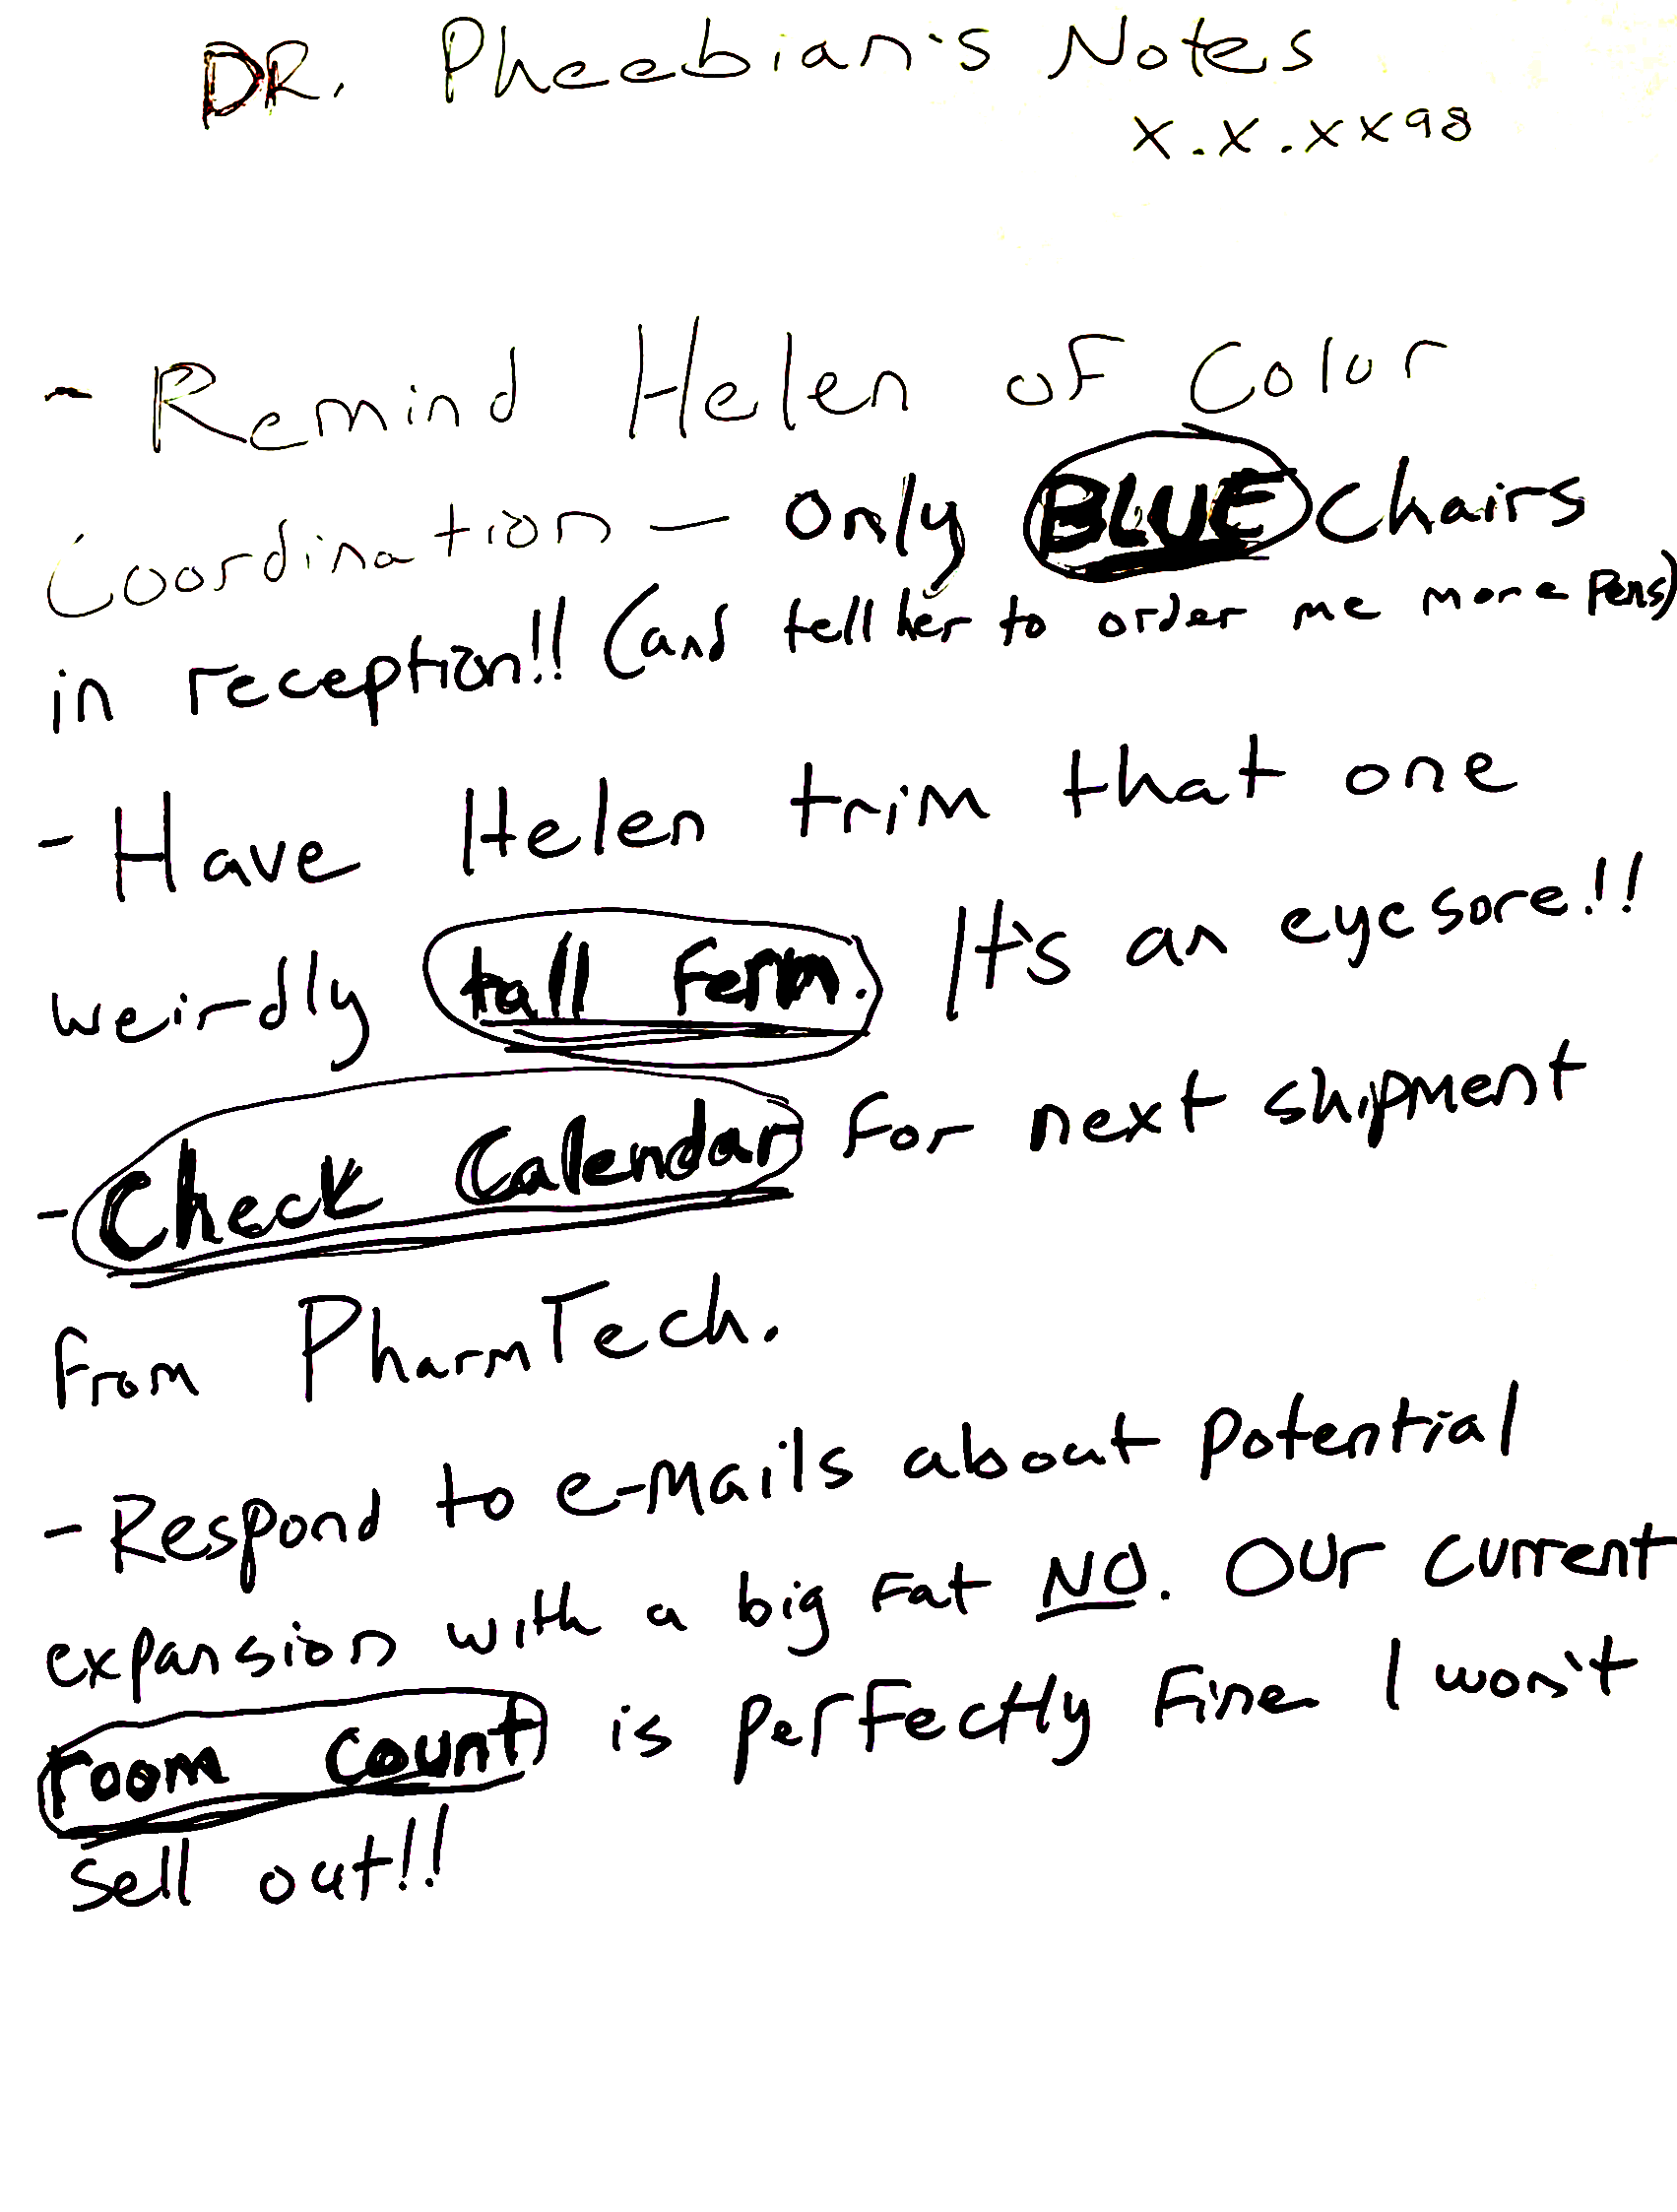 DR. Pheebian's Notes
x.x.xx98
- Remind Helen of Color
Coordination - only BLUE Chairs
in reception!! (and tell her to order me more pens)
- Have Helen trim that one
weirdly tall fern. It's an eyesore!!
- Check Calendar for next shipment
from PharmTech.
- Respond to e-mails about potential
expansion with a big fat NO. Our current
room count is perfectly fine I won't
sell out!!